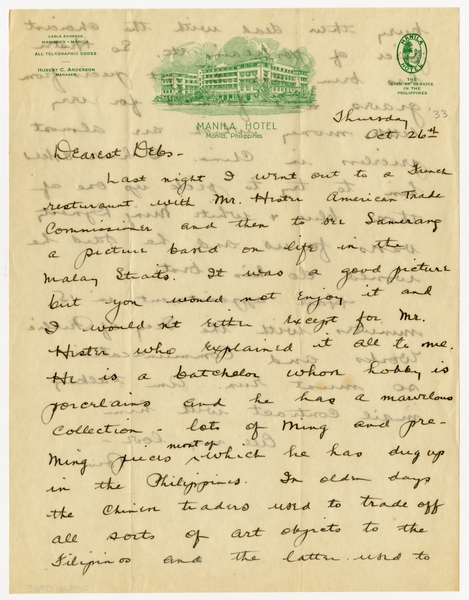 CABLE ADDRESS
MANHOCO - MANILA
ALL TELEGRAPHIC CODES
HUBERT C. ANDERSON
MANAGER
MANILA HOTEL
Manila, Philippines
MANILA
HOTEL
THE
SIGN OF SERVICE
IN THE
PHILIPPINES
'33
Thursday
Oct 26th
Dearest Debs -
Last night I went out to a French
resturaunt with Mr. Hister American Trade
Commissioner and then to see Samarang
a picture based on life in the
Malay Straits. It was a good picture
but you would not enjoy it and
I wouldn't either except for Mr.
Hister who explained it all to me.
He is a batchelor whose hobby is
porcelains and he has a marvelous
collection - lots of Ming and pre-
Ming pieces most of which he has dug up
in the Philippines. In olden days
the Chinese traders used to trade off
all sorts of art objects to the
Filipinos and the latter used to